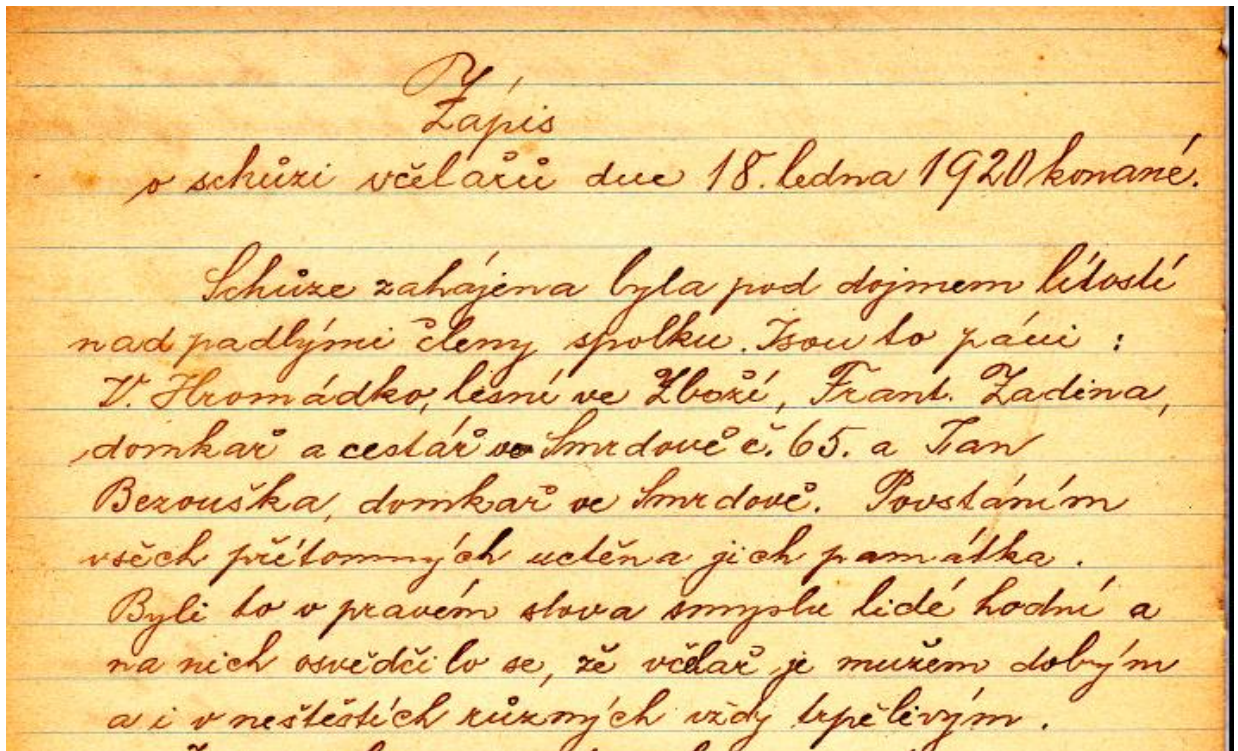 Zápis
o schůzi včelařů dne 18. ledna 1920 konané.
Schůze zahájena byla pod dojmem lítostí
nad padlými členy spolku. Jsou to páni :
V. Hromádko, lesní ve Zboží, Frant. Zadina,
domkař a cestář ve Smrdově č. 65. a Jan
Bezouška, domkař ve Smrdově. Povstáním
všech přítomných uctěna jich památka.
Byli to v pravém slova smyslu lidé hodní a
na nich osvědčilo se, že včelař je mužem dobrým
a i v neštěstích různých vždy trpělivým.